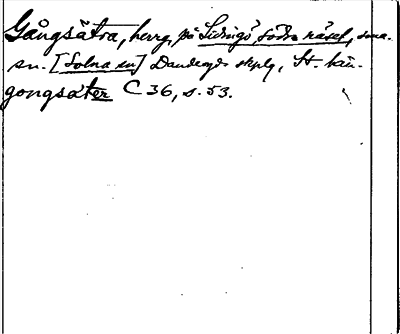 Gångsätra, herrg. på Lidingö södra näset, sma.
sn. [Solna sn] Danderyds skplg, St. län.
gongsäter C 36, s. 53.